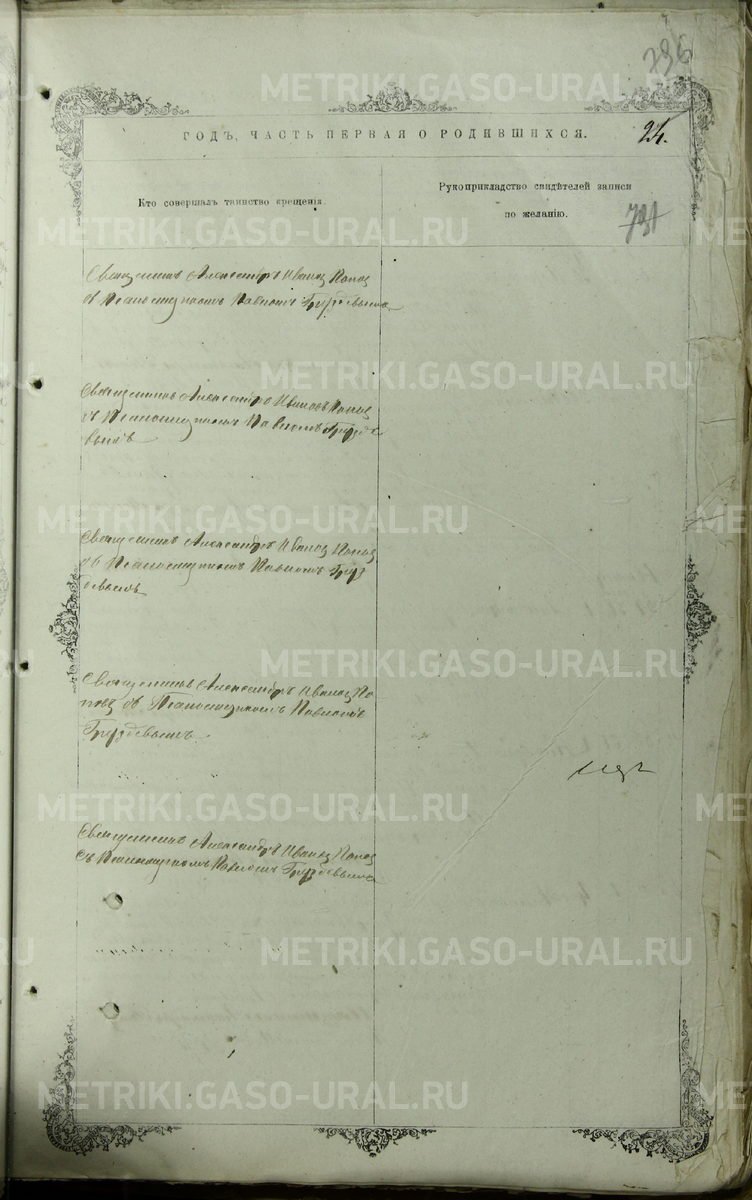 796
ГОДЪ, ЧАСТЬ ПЕРВАЯ О РОДИВШИХСЯ.
24.
Кто совершалъ таинство крещенія.
Рукоприкладство свидѣтелей записи
по желанію.
731
Священникъ Александръ Иванов Попов
съ Псаломщикомъ Павломъ Груздевымъ
Священникъ Александръ Ивановъ Попов
съ Псаломщикомъ Павломъ Грузде
вымъ
Священникъ Александръ Иванов Попов
съ Псаломщикомъ Павломъ Груз
девымъ
Священникъ Александръ Иванов По
пов съ Псаломщикомъ Павломъ
Груздевымъ.
Священникъ Александръ Иванов Попов
Съ Псаломщикомъ Павломъ Груздевымъ
METRIKI.GASO-URAL.RU